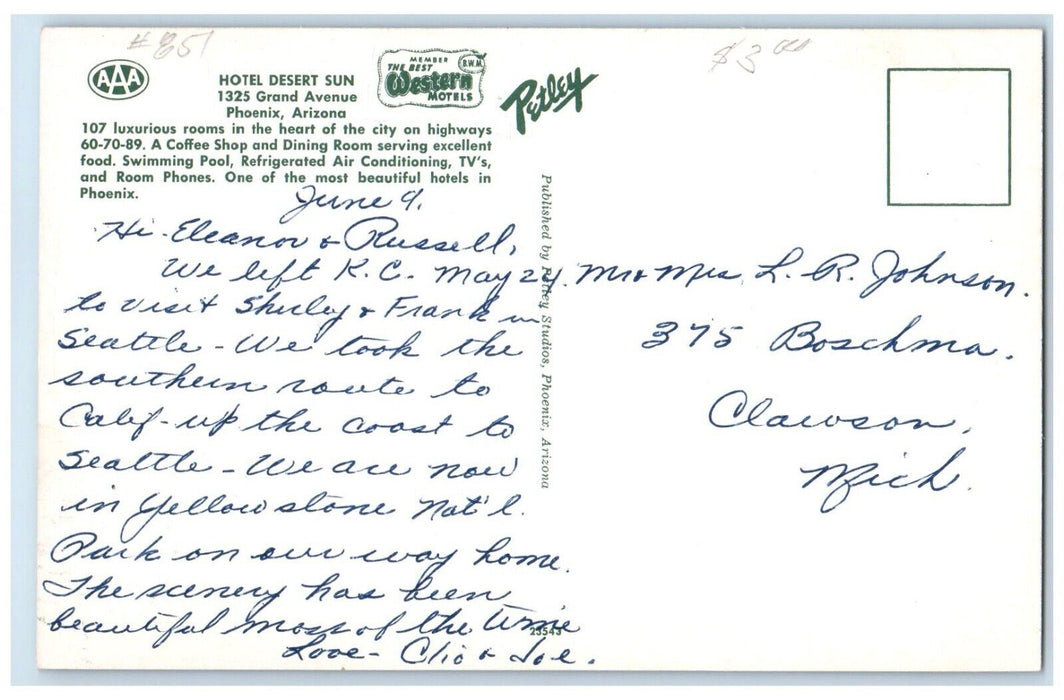 #851
$3.00
AAA
HOTEL DESERT SUN
1325 Grand Avenue
Phoenix, Arizona
107 luxurious rooms in the heart of the city on highways
60-70-89. A Coffee Shop and Dining Room serving excellent
food. Swimming Pool, Refrigerated Air Conditioning, TV's,
and Room Phones. One of the most beautiful hotels in
Phoenix.
MEMBER
THE BEST
B.W.M.
Western
MOTELS
Petley
Published by Petley Studios, Phoenix, Arizona
June 9.
Hi - Eleanor & Russell,
We left K.C. May 24.
to visit Shirley & Frank in
Seattle - We took the
southern route to
Calif - up the coast to
Seattle - We are now
in Yellowstone Nat'l.
Park on our way home.
The scenery has been
beautiful most of the time
Love - Clio & Joe.
23543
Mr & Mrs L. R. Johnson.
375 Boschma.
Clawson,
Mich.